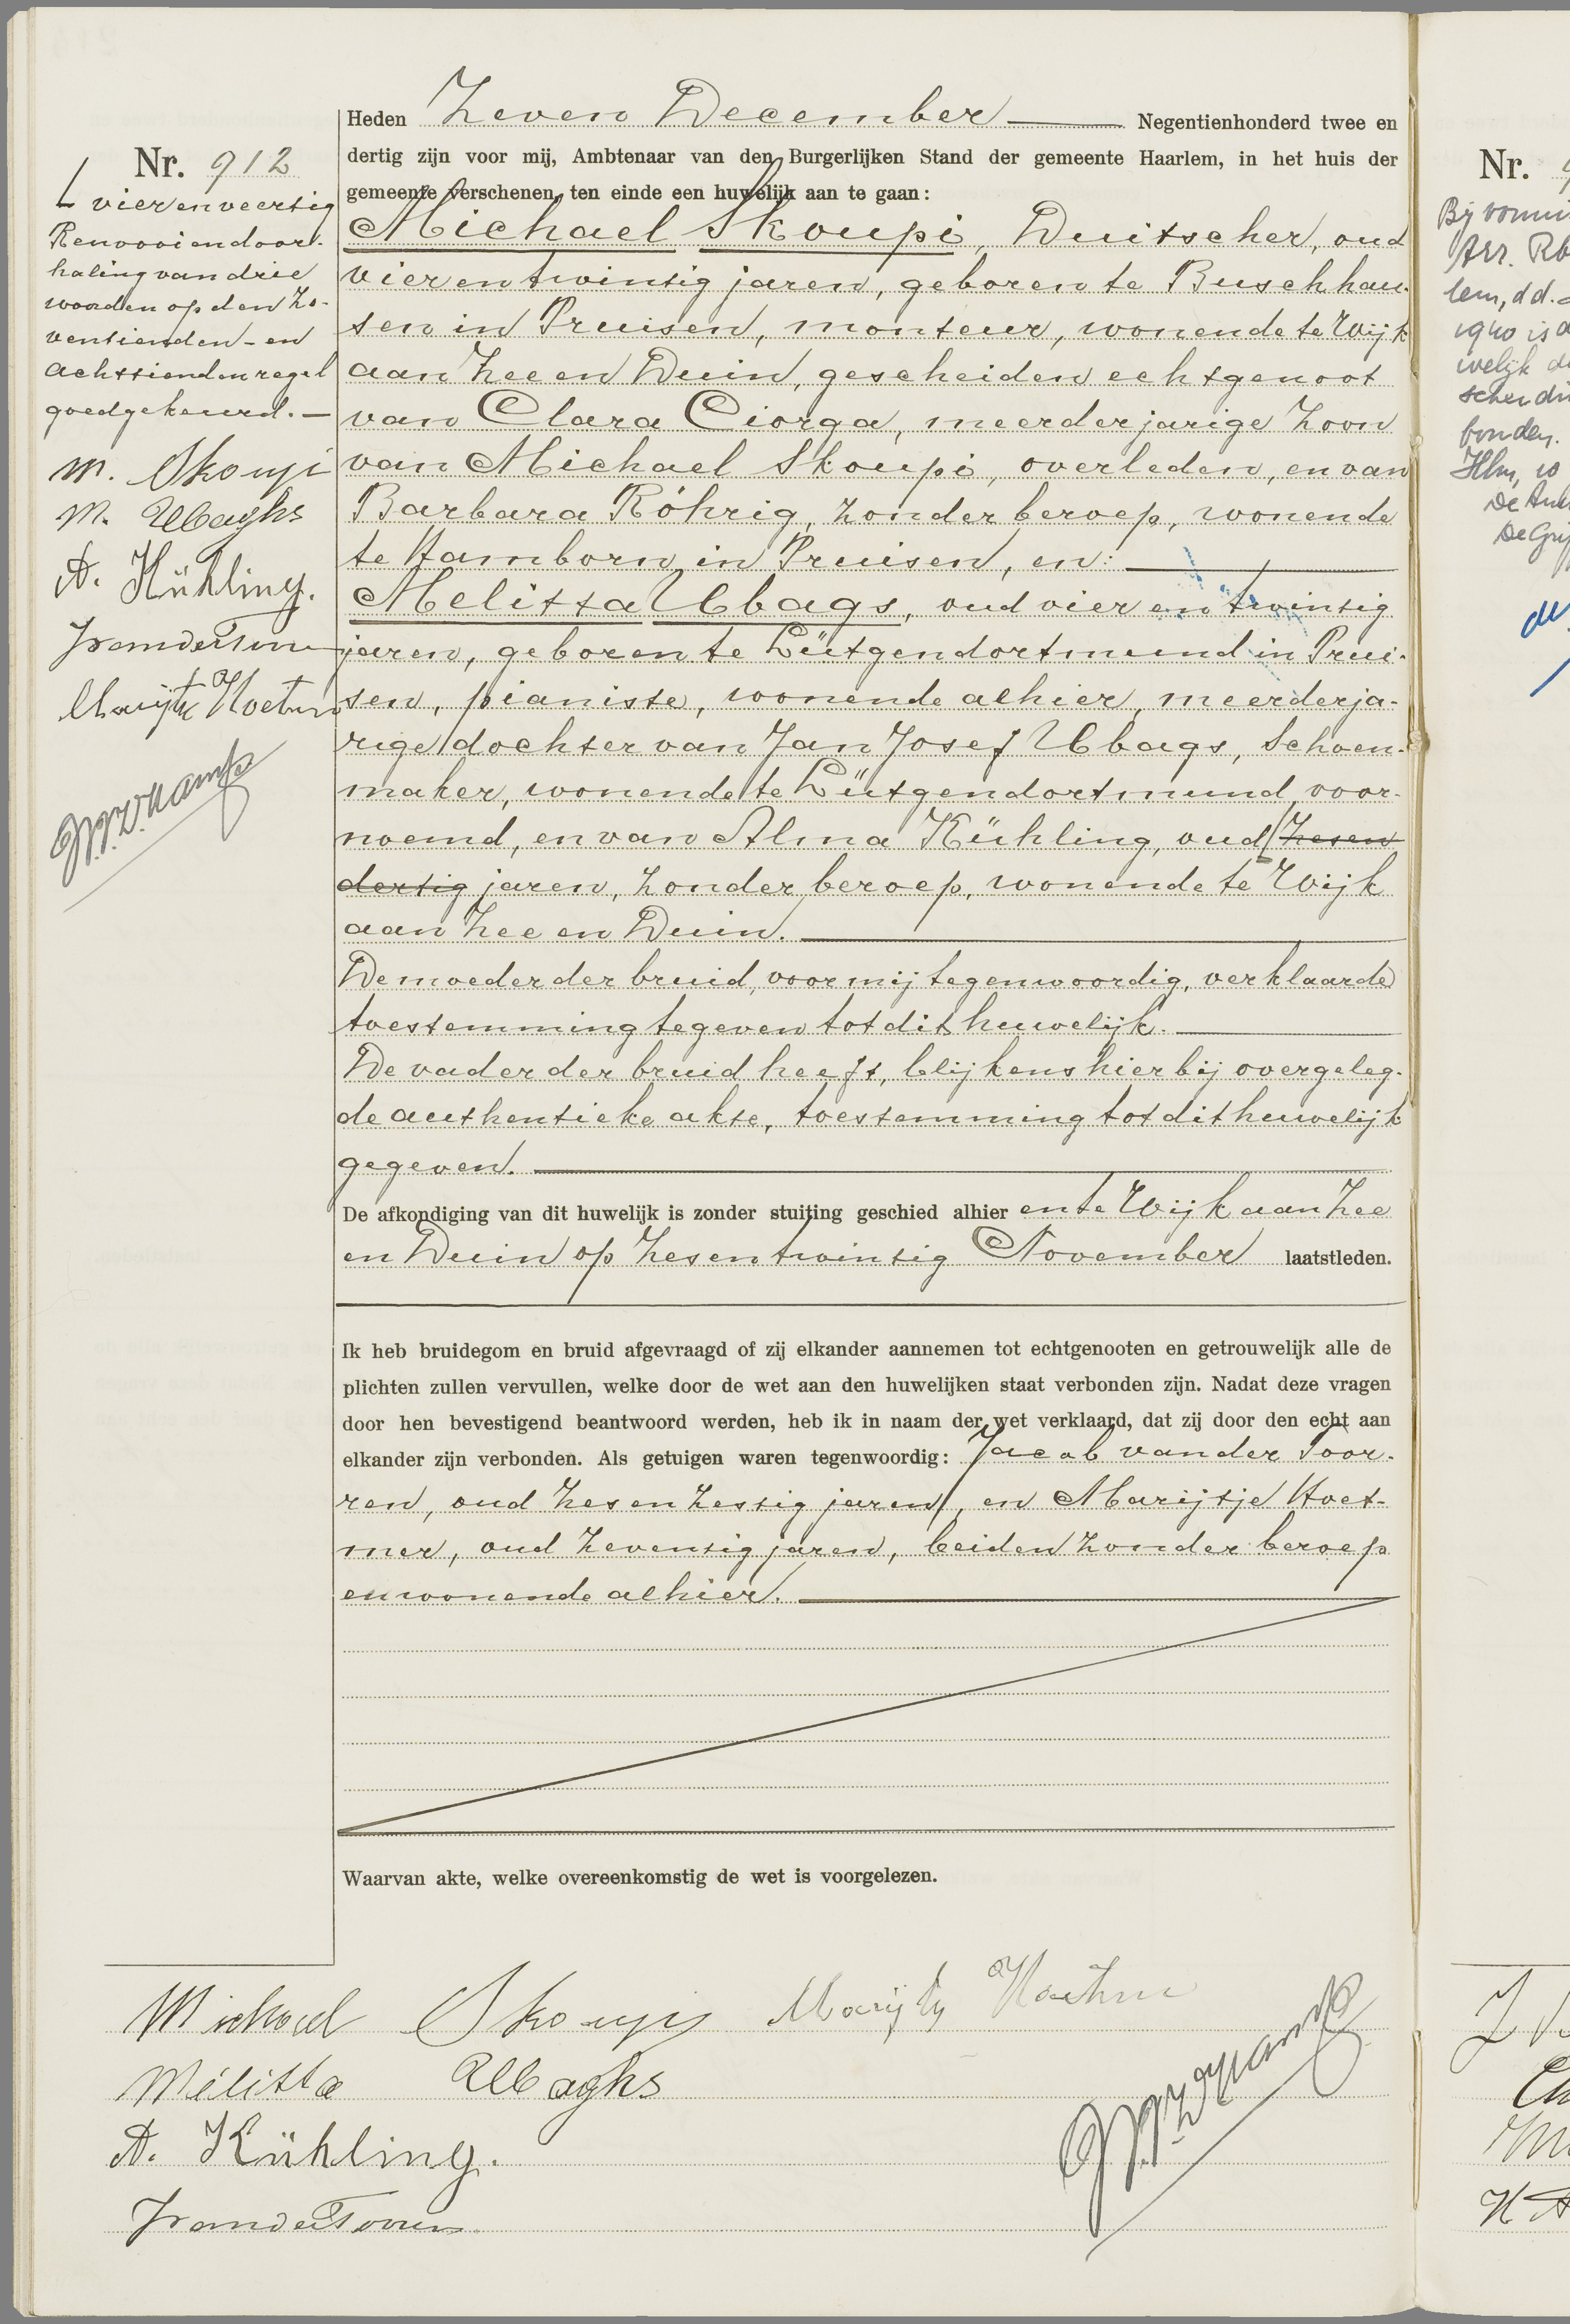 Nr. 912
vierenveertig
Renvooi en door-
haling van drie
woorden op den ze-
ventienden- en
achttienden regel
goedgekeurd. —
M. Skoupi
M. Ubaghs
A. Kühling.
JvanderToorren
Marijtje Hoetmer
Heden Zeven December Negentienhonderd twee en
dertig zijn voor mij, Ambtenaar van den Burgerlijken Stand der gemeente Haarlem, in het huis der
gemeente verschenen, ten einde een huwelijk aan te gaan:
Michael Skoupi, Duitscher, oud
vier en twintig jaren, geboren te Buschhau-
sen in Pruisen, monteur, wonende te Wijk
aan Zee en Duin, gescheiden echtgenoot
van Clara Ciorga, meerderjarige zoon
van Michael Skoupi, overleden, en van
Barbara Röhrig, zonder beroep, wonende
te Hamborn in Pruisen, en:
Melitta Ubags, oud vier en twintig
jaren, geboren te Lütgendortmund in Prui-
sen, pianiste, wonende alhier, meerderja-
rige dochter van Jan Josef Ubags, schoen-
maker, wonende te Lütgendortmund voor-
noemd, en van Alma Kühling, oud zes en
dertig jaren, zonder beroep, wonende te Wijk
aan Zee en Duin.
De moeder der bruid, voor mij tegenwoordig, verklaarde
toestemming te geven tot dit huwelijk.
De vader der bruid heeft, blijkens hierbij overgeleg-
de authentieke akte, toestemming tot dit huwelijk
gegeven.
De afkondiging van dit huwelijk is zonder stuiting geschied alhier en te Wijk aan Zee
en Duin op zes en twintig November laatstleden.
Ik heb bruidegom en bruid afgevraagd of zij elkander aannemen tot echtgenooten en getrouwelijk alle de
plichten zullen vervullen, welke door de wet aan den huwelijken staat verbonden zijn. Nadat deze vragen
door hen bevestigend beantwoord werden, heb ik in naam der wet verklaard, dat zij door den echt aan
elkander zijn verbonden. Als getuigen waren tegenwoordig: Jacob van der Toor-
ren, oud zes en zestig jaren, en Marijtje Hoet-
mer, oud zeventig jaren, beiden zonder beroep
en wonende alhier.
Waarvan akte, welke overeenkomstig de wet is voorgelezen.
Michael Skoupi Marijtje Hoetmer
Melitta Ubaghs
A. Kühling.
JvanderToorren
Nr.
Bij vonni
Arr. Rb
lem, dd.
1940 is d
welijk d
scheidi
bonden.
Hlm, 10
De
De Grif